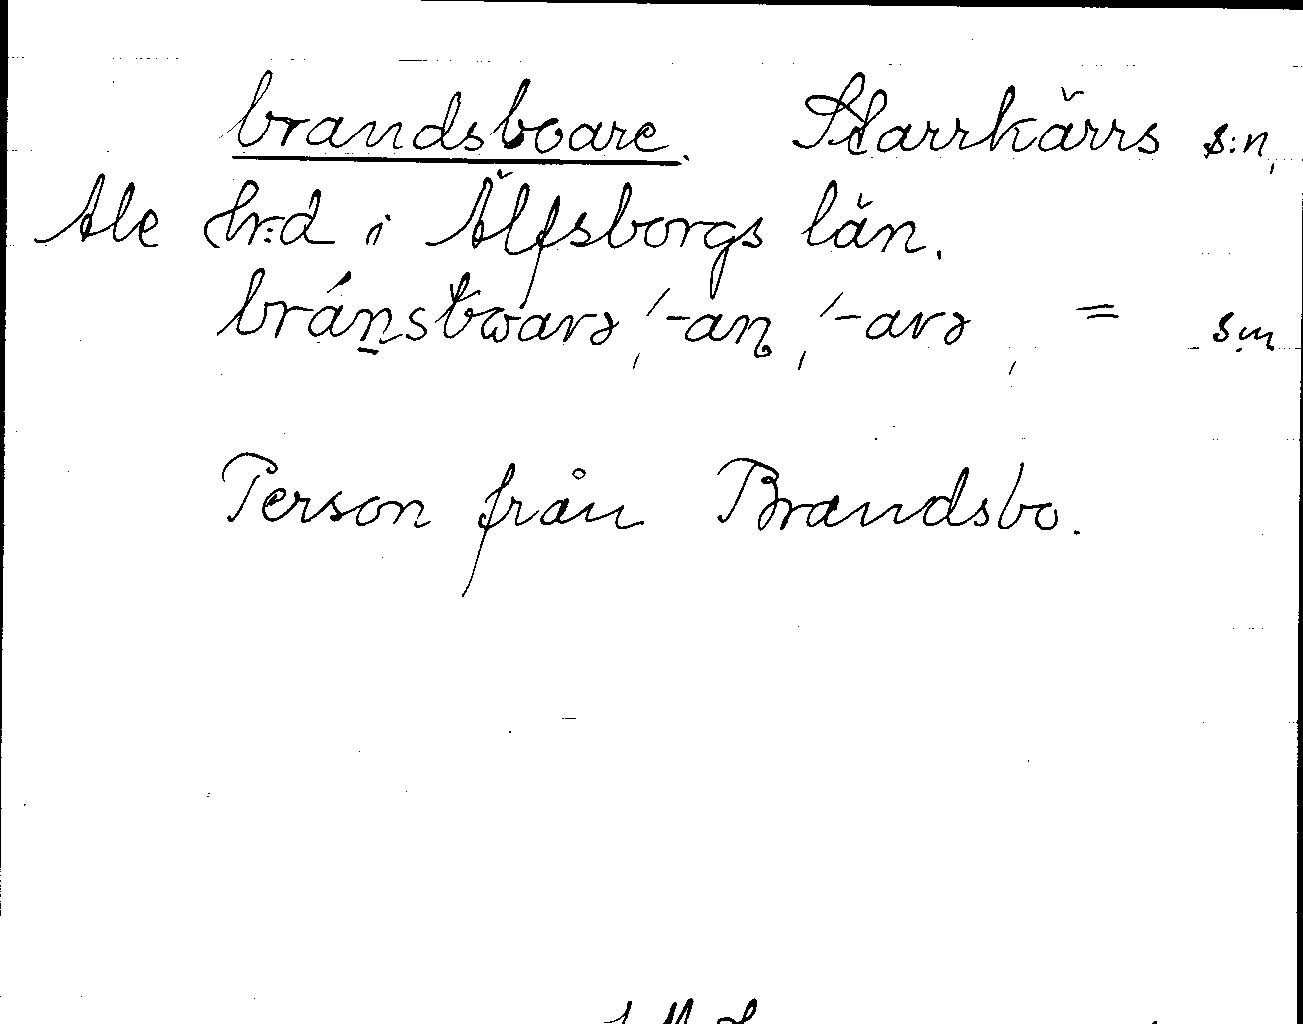 brandsboare. Starrkärrs s:n,
Ale hrd i Älfsborgs län.
bránstwarə, ′-an, ′-arə, = sm
Person från Brandsbo.